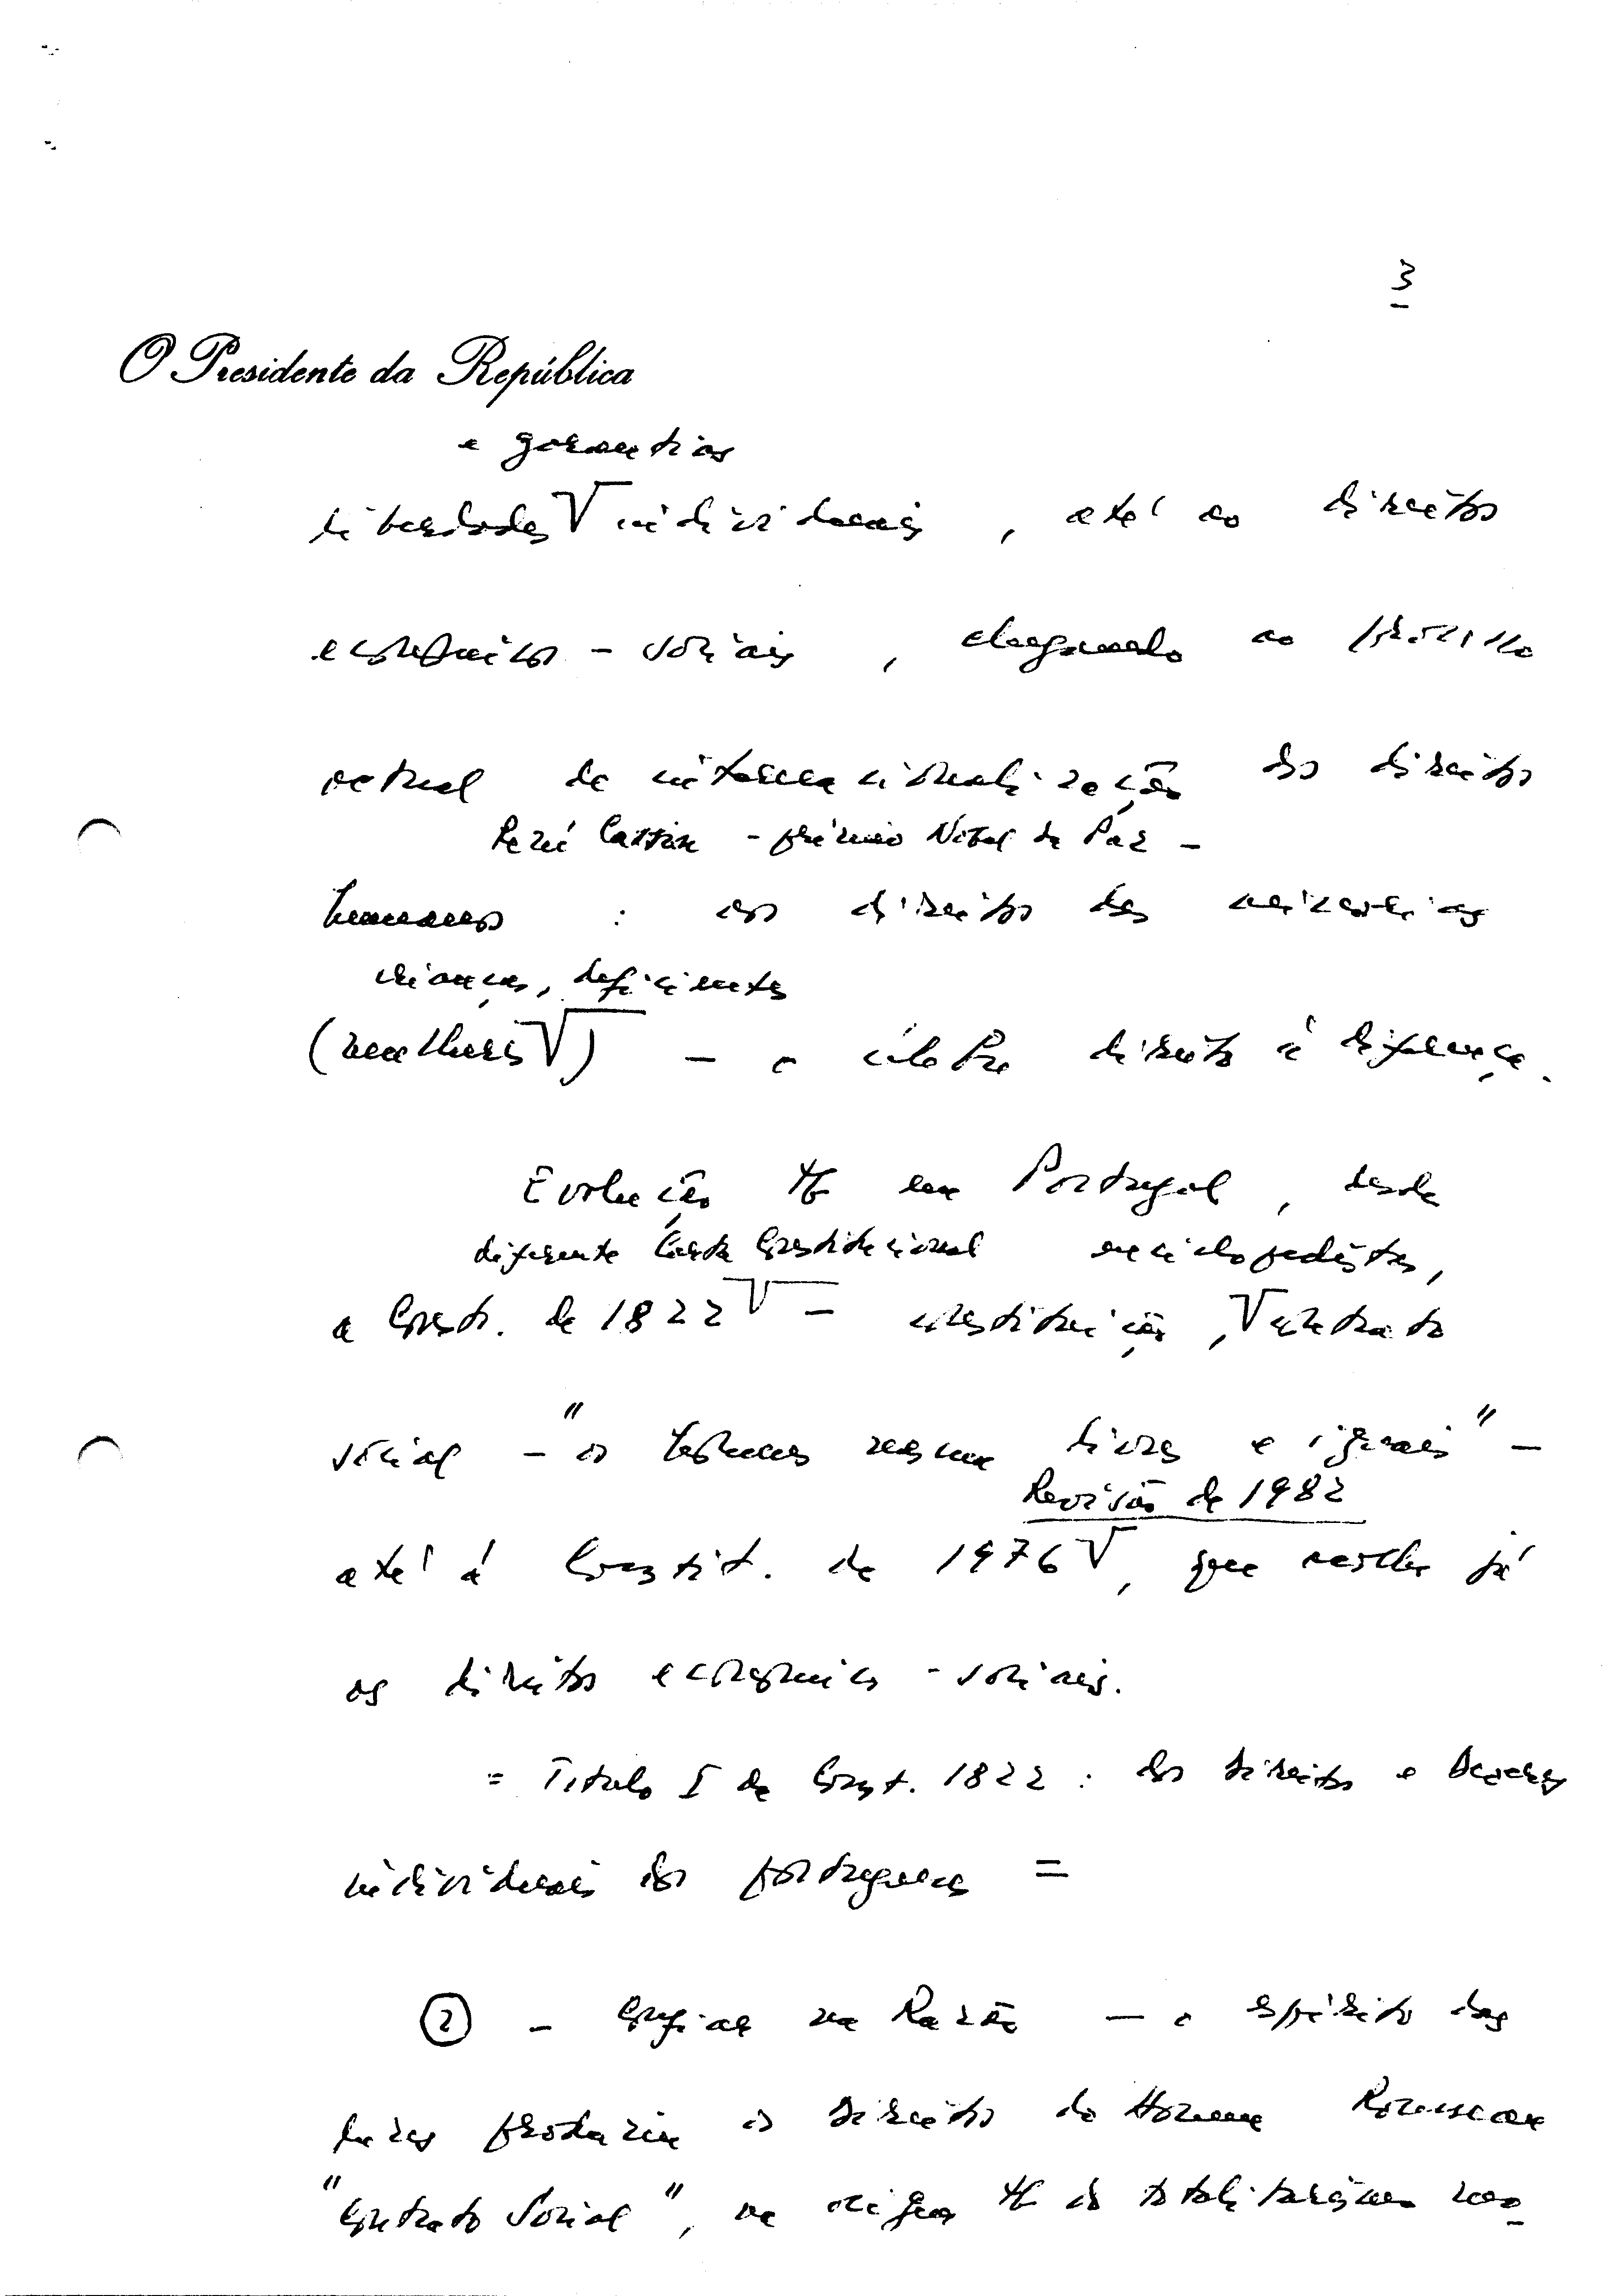 3
O Presidente da República
e garantias
liberdades V individuais, até ao direitos
económicos - sociais, chegando ao próximo
actual de internacionalização dos direitos
René Cassin - prémio Nobel da Paz -
humanos : aos direitos das minorias
crianças, deficientes
(mulheres V) - o direito à diferença.
Evolução tb em Portugal, desde
diferente Carta Constitucional enciclopedistas,
a Const. de 1822 V - constituição, V contrato
social - "os homens nascem livres e iguais" -
Revisão de 1982
até à Constit. de 1976 V, que acolhe já
os direitos económico - sociais.
= Titulo I da Const. 1822 : dos Direitos e Deveres
individuais dos portugueses =
② - Confiar na Razão - o espírito das
luzes produziu os Direitos do Homem Rousseau
"Contrato Social", na origem tb do totalitarismo mo-